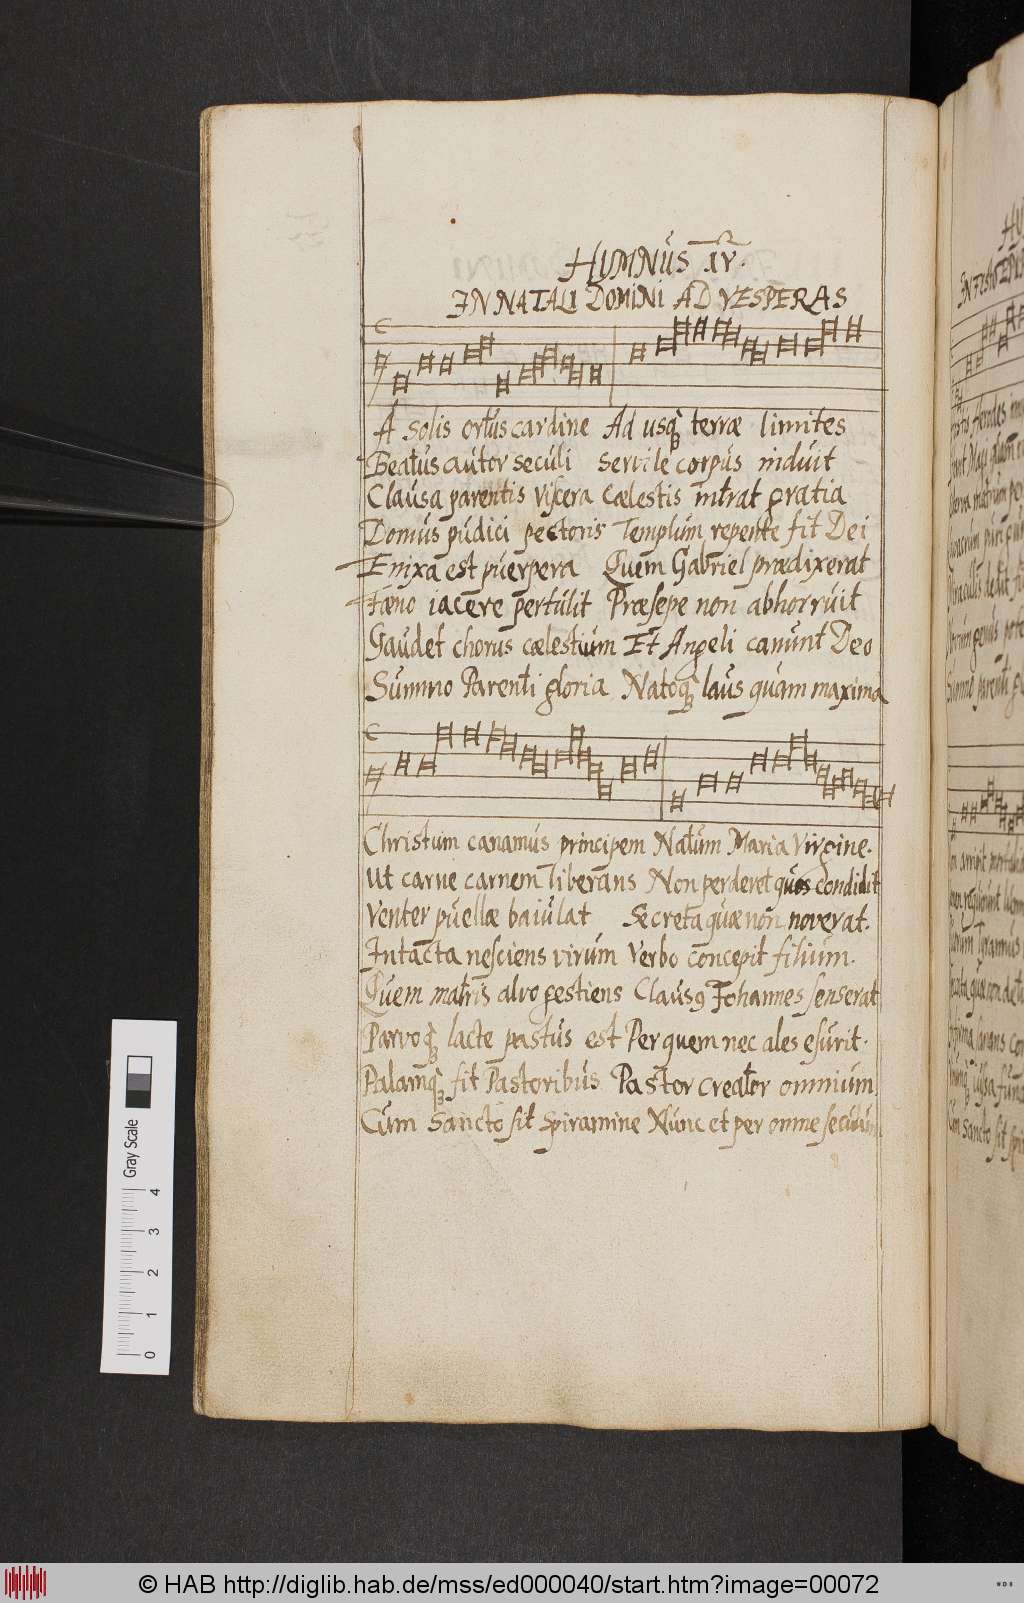 HYMNUS IV.
IN NATALI DOMINI AD VESPERAS
A solis ortus cardine Ad usq₃ terræ limites
Beatus autor seculi Servile corpus induit
Clausa parentis viscera cælestis intrat gratia
Domus pudici pectoris Templum repente fit Dei
Enixa est puerpera Quem Gabriel prædixerat
Fæno iacere pertulit Præsepe non abhorruit
Gaudet chorus cælestium Et Angeli canunt Deo
Summo Parenti gloria Natoq₃ laus quam maxima
Christum canamus principem Natum Maria Virgine.
Ut carne carnem liberans Non perderet quos condidit
Venter puellæ baiulat Secreta quæ non noverat.
Intacta nesciens virum Verbo concepit filium.
Quem matris alvo gestiens Claus9 Johannes senserat
Parvoq₃ lacte pastus est Per quem nec ales esurit.
Palamq₃ fit Pastoribus Pastor creator omnium
Cum Sancto sit Spiramine Nunc et per omne seculum
Gray Scale
0 1 2 3 4
© HAB http://diglib.hab.de/mss/ed000040/start.htm?image=00072